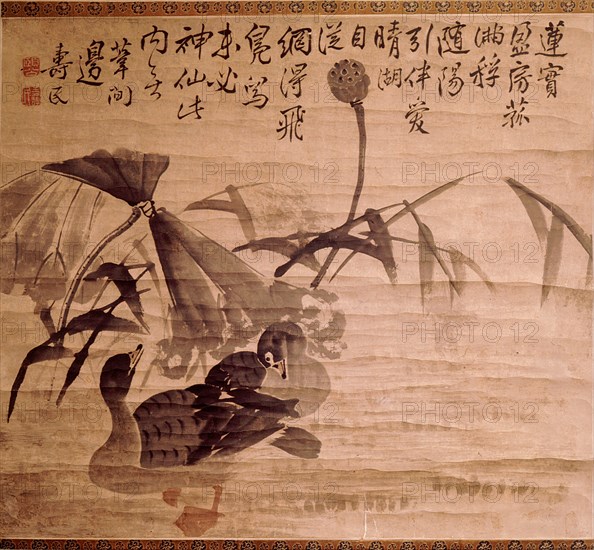 蓮實
盈房菰
滿稃
隨陽
引伴愛
晴湖
自
從
網得飛
鳧舄
未必
神仙此
内无
葦間
邊
壽民
PHOTO 12